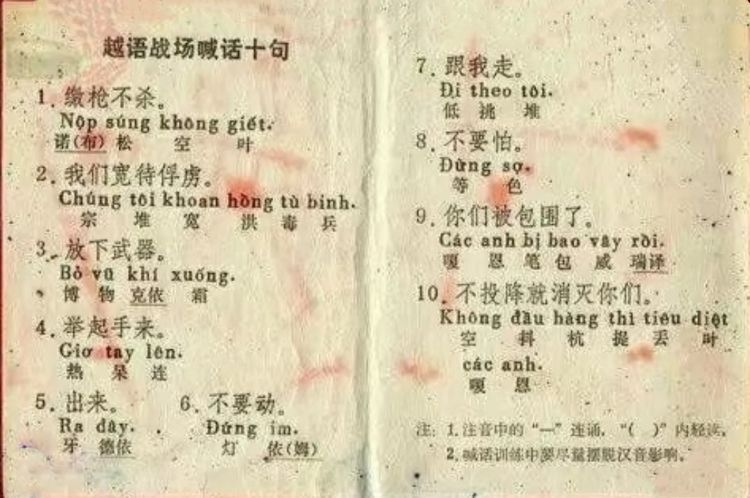 越语战场喊话十句
1. 缴枪不杀。
Nộp súng không giết.
诺(布) 松 空 叶
2. 我们宽待俘虏。
Chúng tôi khoan hồng tù binh.
宗 堆 宽 洪 毒 兵
3. 放下武器。
Bỏ vũ khí xuống.
博 物 克依 霜
4. 举起手来。
Giơ tay lên.
热 呆 连
5. 出来。 6. 不要动。
Ra đây. Đứng im.
牙 德依 灯 依(姆)
7. 跟我走。
Đi theo tôi.
低 挑 堆
8. 不要怕。
Đừng sợ.
等 色
9. 你们被包围了。
Các anh bị bao vây rồi.
嘎 恩 笔 包 威 瑞译
10. 不投降就消灭你们。
Không đầu hàng thì tiêu diệt
空 抖 杭 提 丢 叶
các anh.
嘎 恩
注: 1. 注音中的“—”连诵,“( )”内轻读。
2. 喊话训练中要尽量摆脱汉音影响。